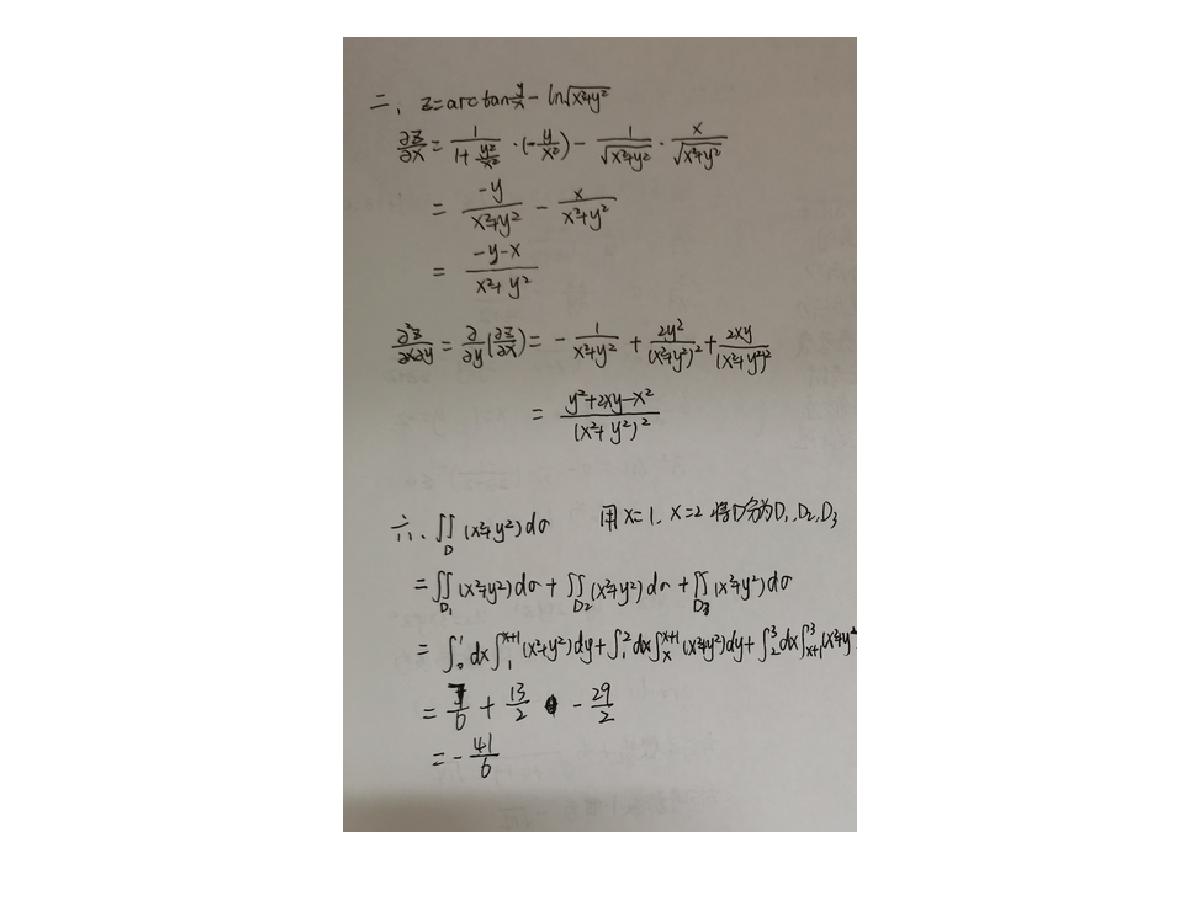 二、z=arctan y/x - ln√(x²+y²)
∂z/∂x = 1/(1+y²/x²) · (-y/x²) - 1/√(x²+y²) · x/√(x²+y²)
= -y/(x²+y²) - x/(x²+y²)
= (-y-x)/(x²+y²)
∂²z/∂x∂y = ∂/∂y(∂z/∂x) = -1/(x²+y²) + 2y²/(x²+y²)² + 2xy/(x²+y²)²
= (y²+2xy-x²)/(x²+y²)²
六、∬_D (x²+y²)dσ 用x=1、x=2将D分为D₁、D₂、D₃
=∬_D₁ (x²+y²)dσ + ∬_D₂ (x²+y²)dσ + ∬_D₃ (x²+y²)dσ
= ∫₀¹dx∫₁^(x+1) (x²+y²)dy + ∫₁²dx∫ₓ^(x+1) (x²+y²)dy + ∫₂³dx∫_(x+1)^3 (x²+y²
= 7/6 + 13/2 - 29/2
= -41/6